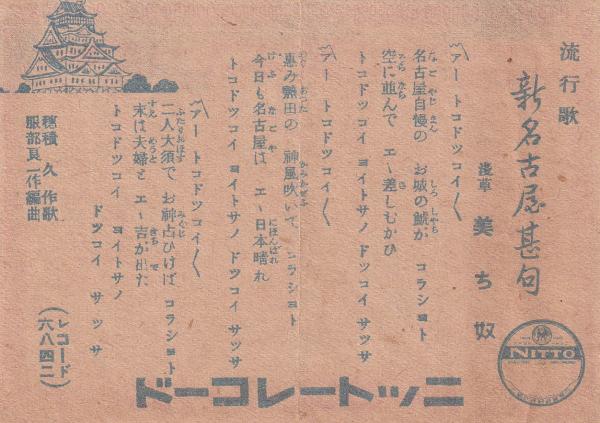 流行歌
新名古屋甚句
浅草 美ち奴
アー トコドツコイ〱
名古屋自慢の お城の鯱が コラシヨト
空に並んで エー差しむかひ
トコドツコイ ヨイトサノ ドツコイ サツサ
アー トコドツコイ〱
恵み熱田の 神風吹いて コラシヨト
今日も名古屋は エー日本晴れ
トコドツコイ ヨイトサノ ドツコイ サツサ
アー トコドツコイ〱
二人大須で お神占ひけば コラシヨト
末は夫婦と エー吉が出た
トコドツコイ ヨイトサノ
ドツコイ サツサ
穂積久作歌
服部良一作編曲
(レコード六八四二)
NITTO
ニットーレコード